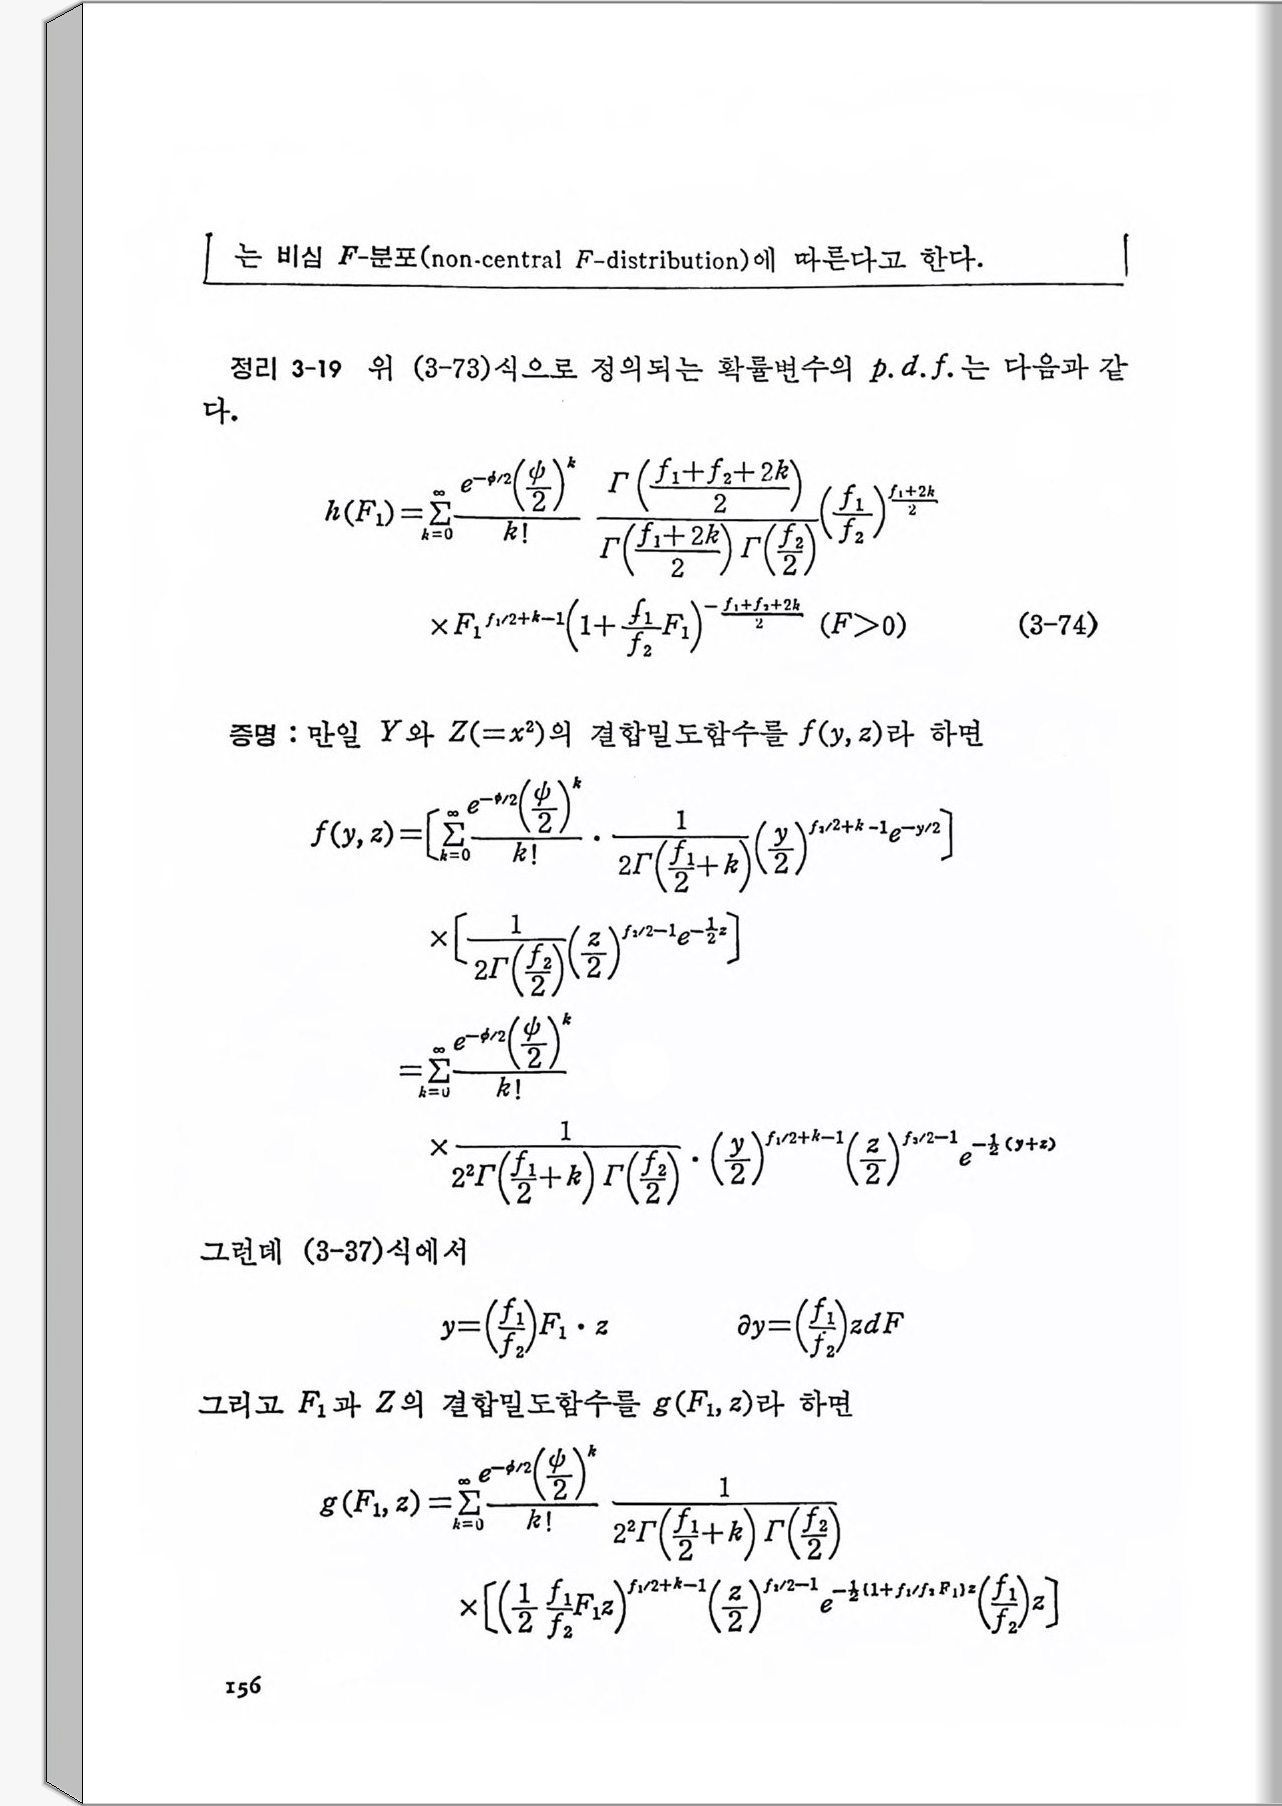 는 비심 F-분포(non-central F-distribution)에 따른다고 한다.
정리 3-19 위 (3-73)식으로 정의되는 확률변수의 p.d.f.는 다음과 같
다.
h(F₁)=∑_{k=0}^{∞} \frac{e^{-ϕ/2}(\frac{ψ}{2})^k}{k!} \frac{Γ(\frac{f₁+f₂+2k}{2})}{Γ(\frac{f₁+2k}{2})Γ(\frac{f₂}{2})}(\frac{f₁}{f₂})^{\frac{f₁+2k}{2}}
×F₁^{f₁/2+k-1}(1+\frac{f₁}{f₂}F₁)^{-\frac{f₁+f₂+2k}{2}} (F>0) (3-74)
증명 : 만일 Y와 Z(=x²)의 결합밀도함수를 f(y, z)라 하면
f(y, z)=[∑_{k=0}^{∞} \frac{e^{-ϕ/2}(\frac{ψ}{2})^k}{k!} · \frac{1}{2Γ(\frac{f₁}{2}+k)}(\frac{y}{2})^{f₁/2+k-1}e^{-y/2}]
×[\frac{1}{2Γ(\frac{f₂}{2})}(\frac{z}{2})^{f₂/2-1}e^{-\frac{1}{2}z}]
=∑_{k=0}^{∞} \frac{e^{-ϕ/2}(\frac{ψ}{2})^k}{k!}
×\frac{1}{2²Γ(\frac{f₁}{2}+k)Γ(\frac{f₂}{2})} · (\frac{y}{2})^{f₁/2+k-1}(\frac{z}{2})^{f₂/2-1}e^{-\frac{1}{2}(y+z)}
그런데 (3-37)식에서
y=(\frac{f₁}{f₂})F₁ · z ∂y=(\frac{f₁}{f₂})zdF
그리고 F₁과 Z의 결합밀도함수를 g(F₁, z)라 하면
g(F₁, z)=∑_{k=0}^{∞} \frac{e^{-ϕ/2}(\frac{ψ}{2})^k}{k!} \frac{1}{2²Γ(\frac{f₁}{2}+k)Γ(\frac{f₂}{2})}
×[(\frac{1}{2}\frac{f₁}{f₂}F₁z)^{f₁/2+k-1}(\frac{z}{2})^{f₂/2-1}e^{-\frac{1}{2}(1+f₁/f₂F₁)z}(\frac{f₁}{f₂})z]
156